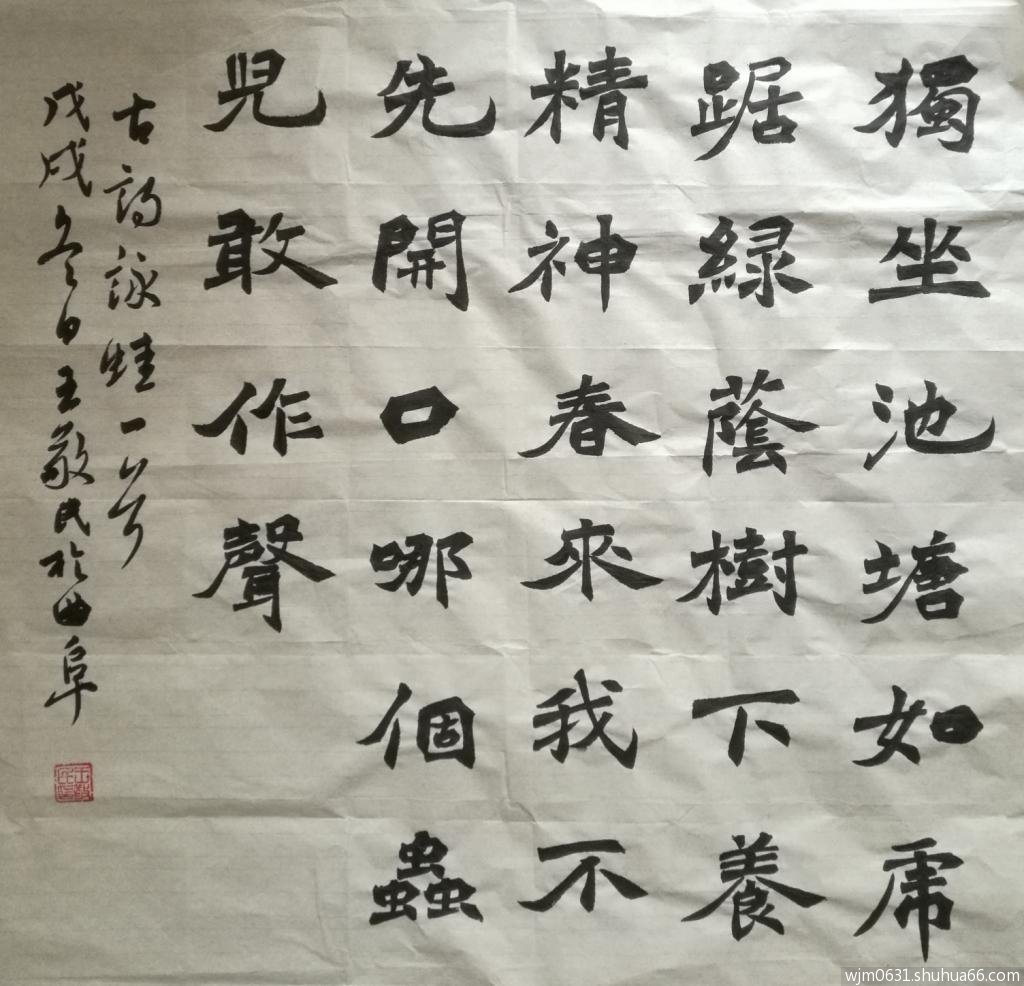 獨坐池塘如虎
踞緑蔭樹下養
精神春來我不
先開口哪個蟲
兒敢作聲
古詩詠蛙一首
戊戌冬日王敬民於曲阜
wjm0631.shuhua66.com